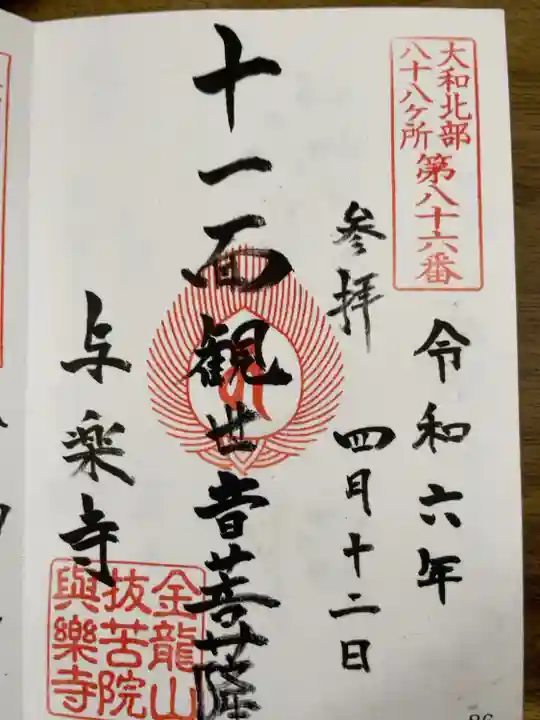 大和北部
八十八ケ所
第八十六番
令和六年
四月十二日
参拝
十一面観世音菩薩
与楽寺
金龍山
抜苦院
與樂寺
86